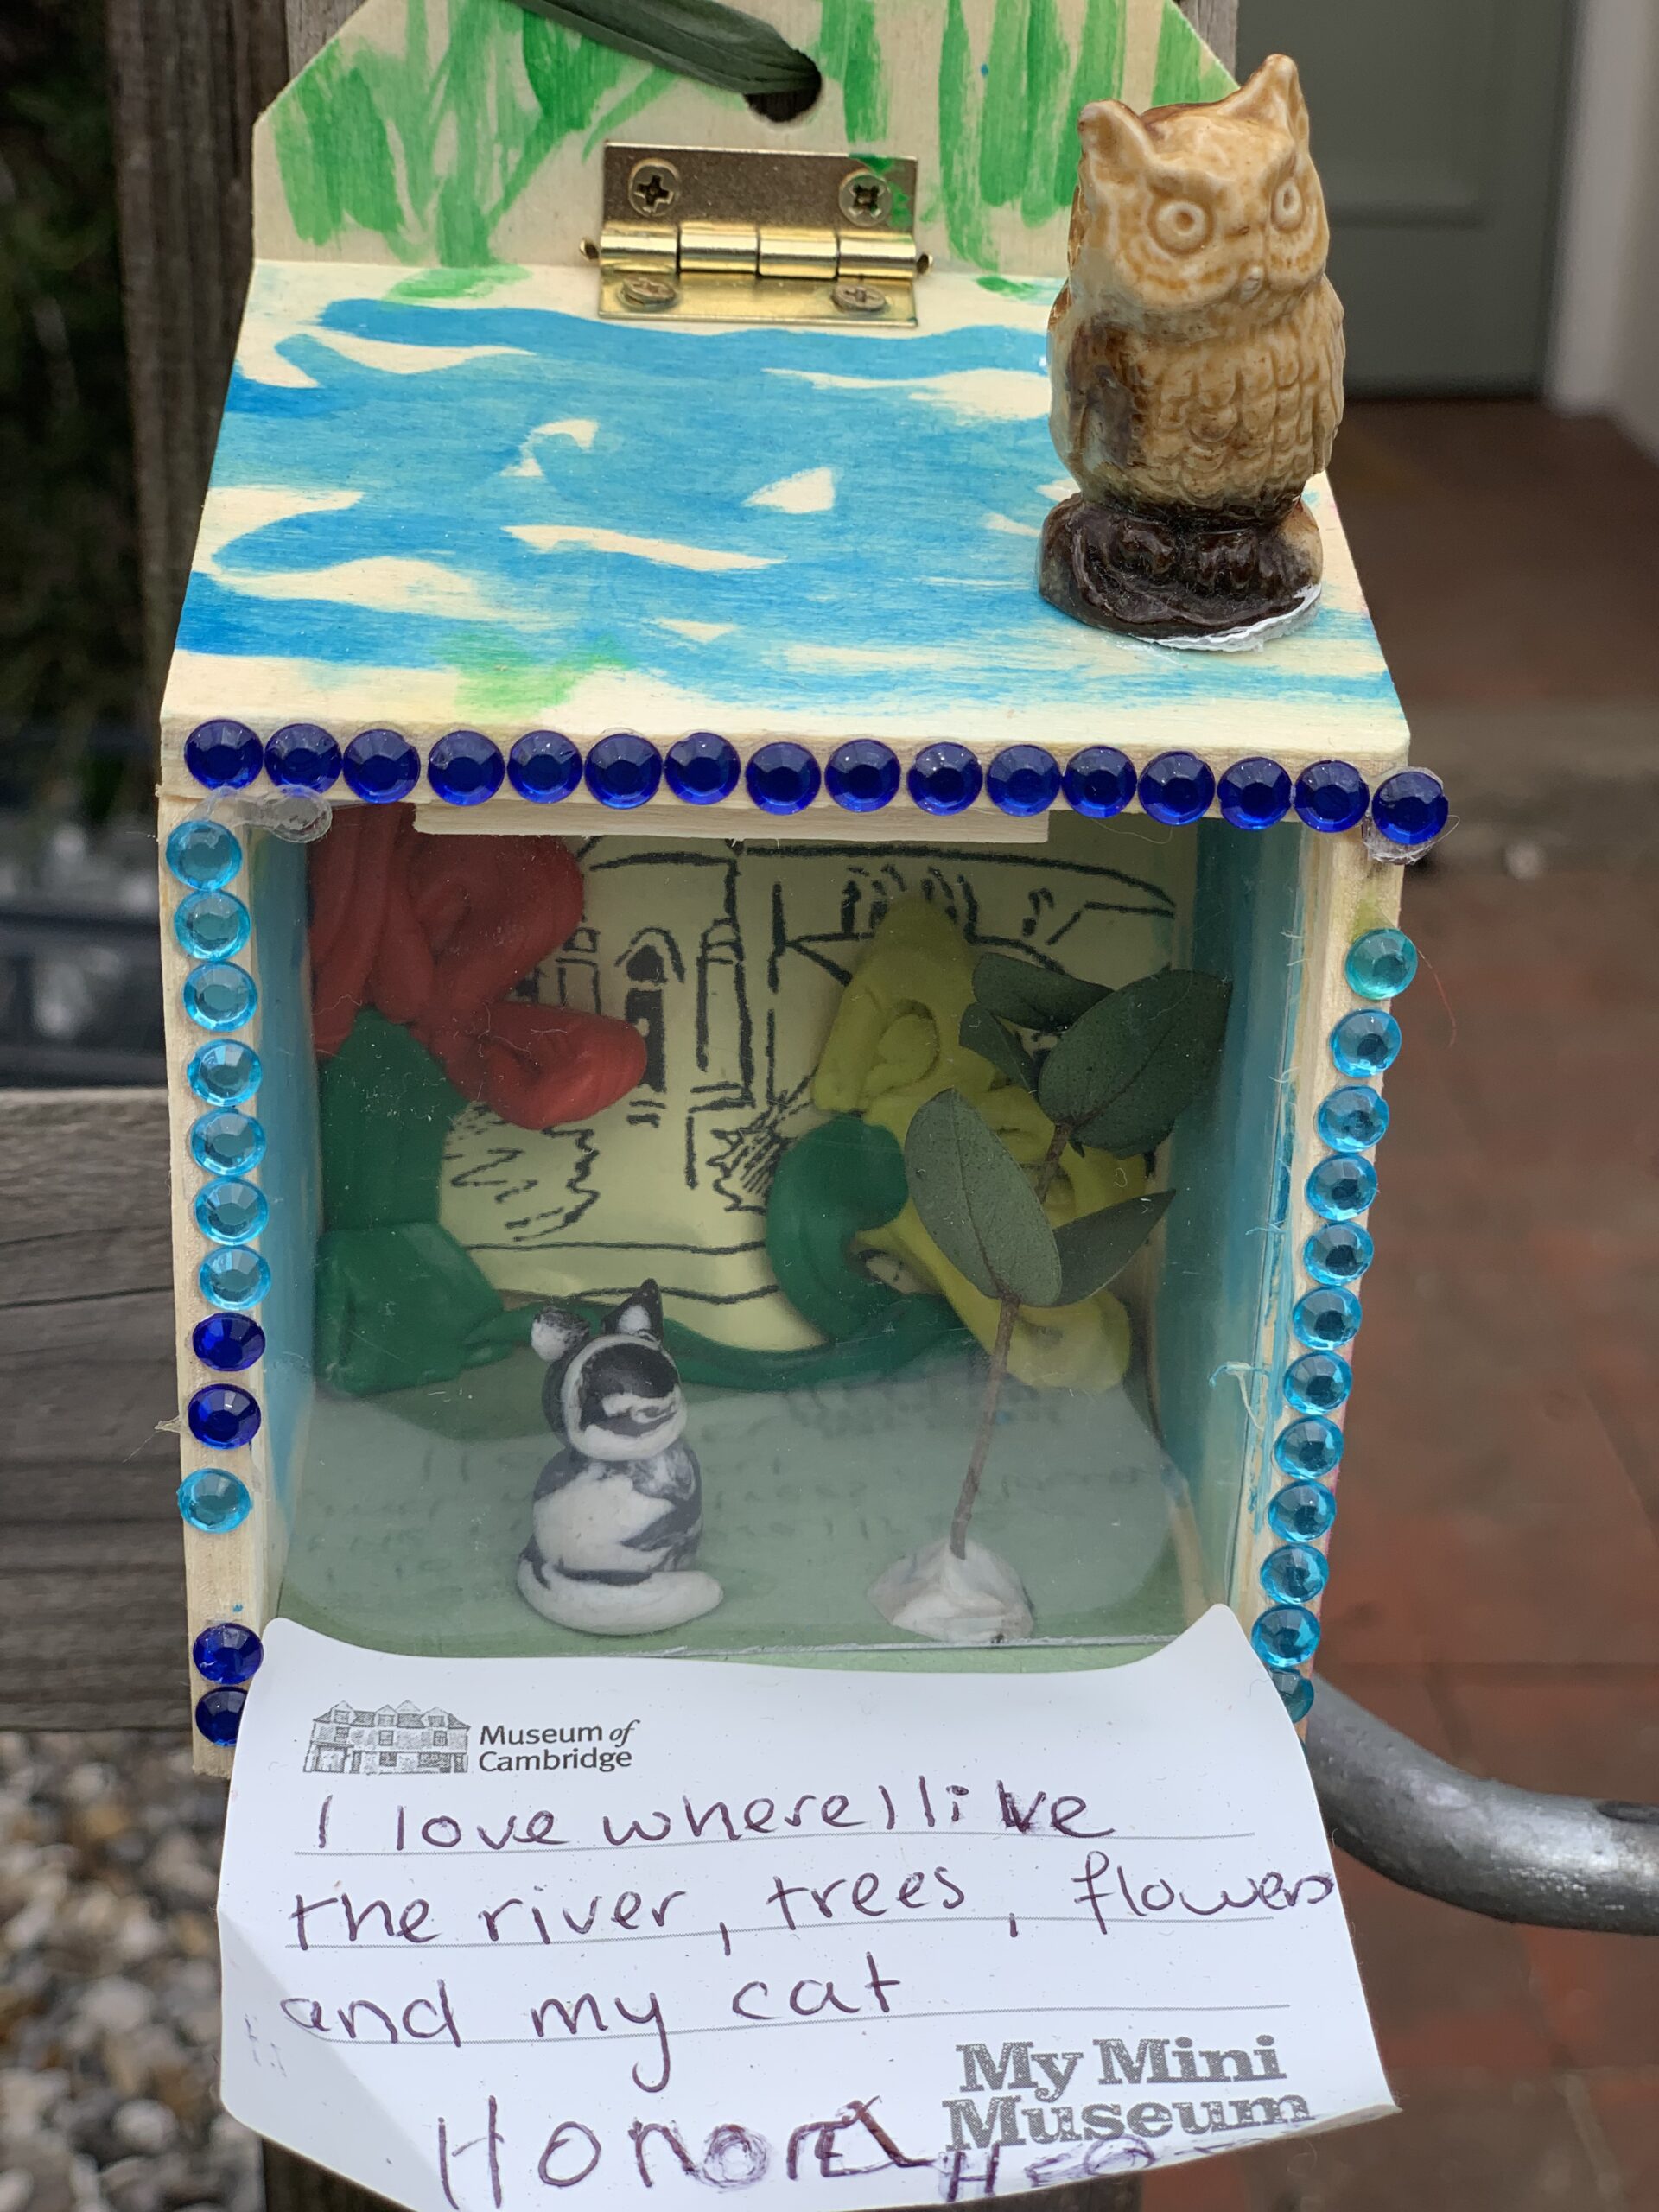 Museum of
Cambridge
I love where I live
the river, trees, flowers
and my cat
My Mini
Museum
Honor